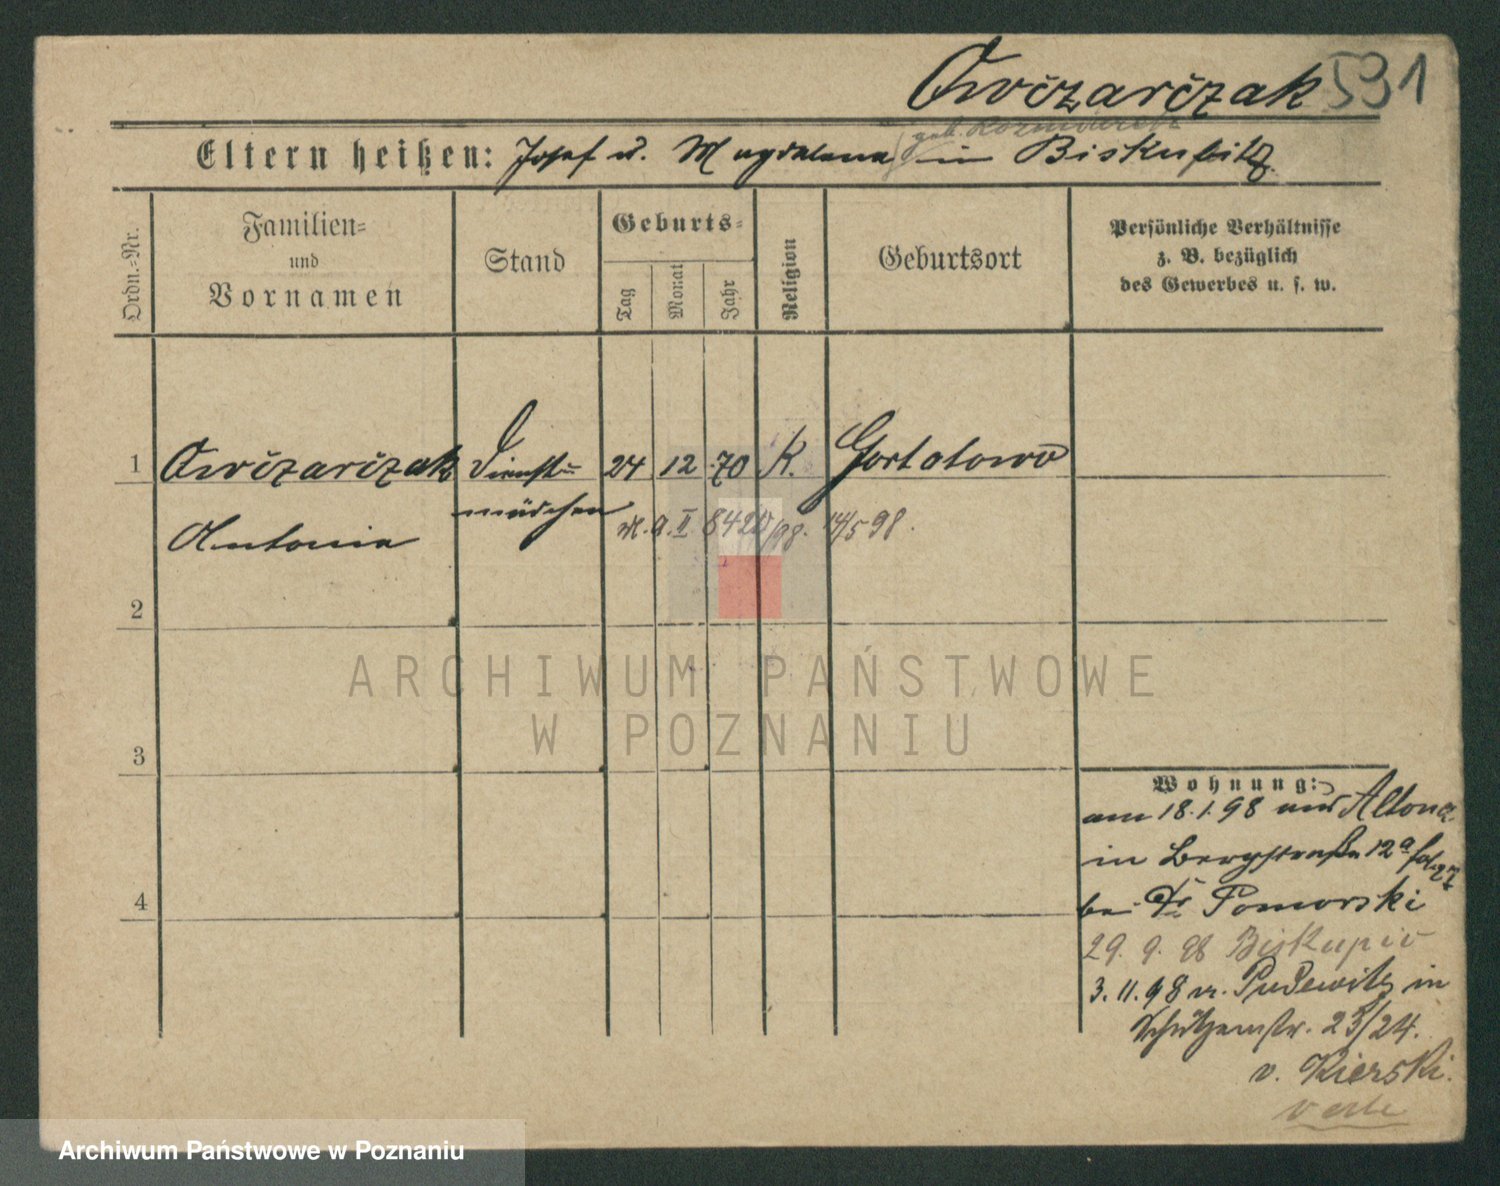 Owčzarčzak 591
Eltern heißen: Josef u. Magdalena geb. in Biskupitz
Ordn.-Nr.
Familien-
und
Vornamen
Stand
Geburts-
Tag
Monat
Jahr
Religion
Geburtsort
Persönliche Verhältnisse
z. B. bezüglich
des Gewerbes u. s. w.
1 Owčzarčzak Dienst- 24 12 70 K. Gortatowo
mädchen
Antonia
M. a. II 8420/98. 14/5 98.
2
ARCHIWUM PAŃSTWOWE
W POZNANIU
3
Wohnung:
am 18.1.98 aus Altona
in Bergstraße 12a
4
bei Dr Pomorski
29. 9. 98 Biskupic
3. 11. 98 v. Pudewitz in
Schützenstr. 23/24.
v. Kierski.
verte
Archiwum Państwowe w Poznaniu